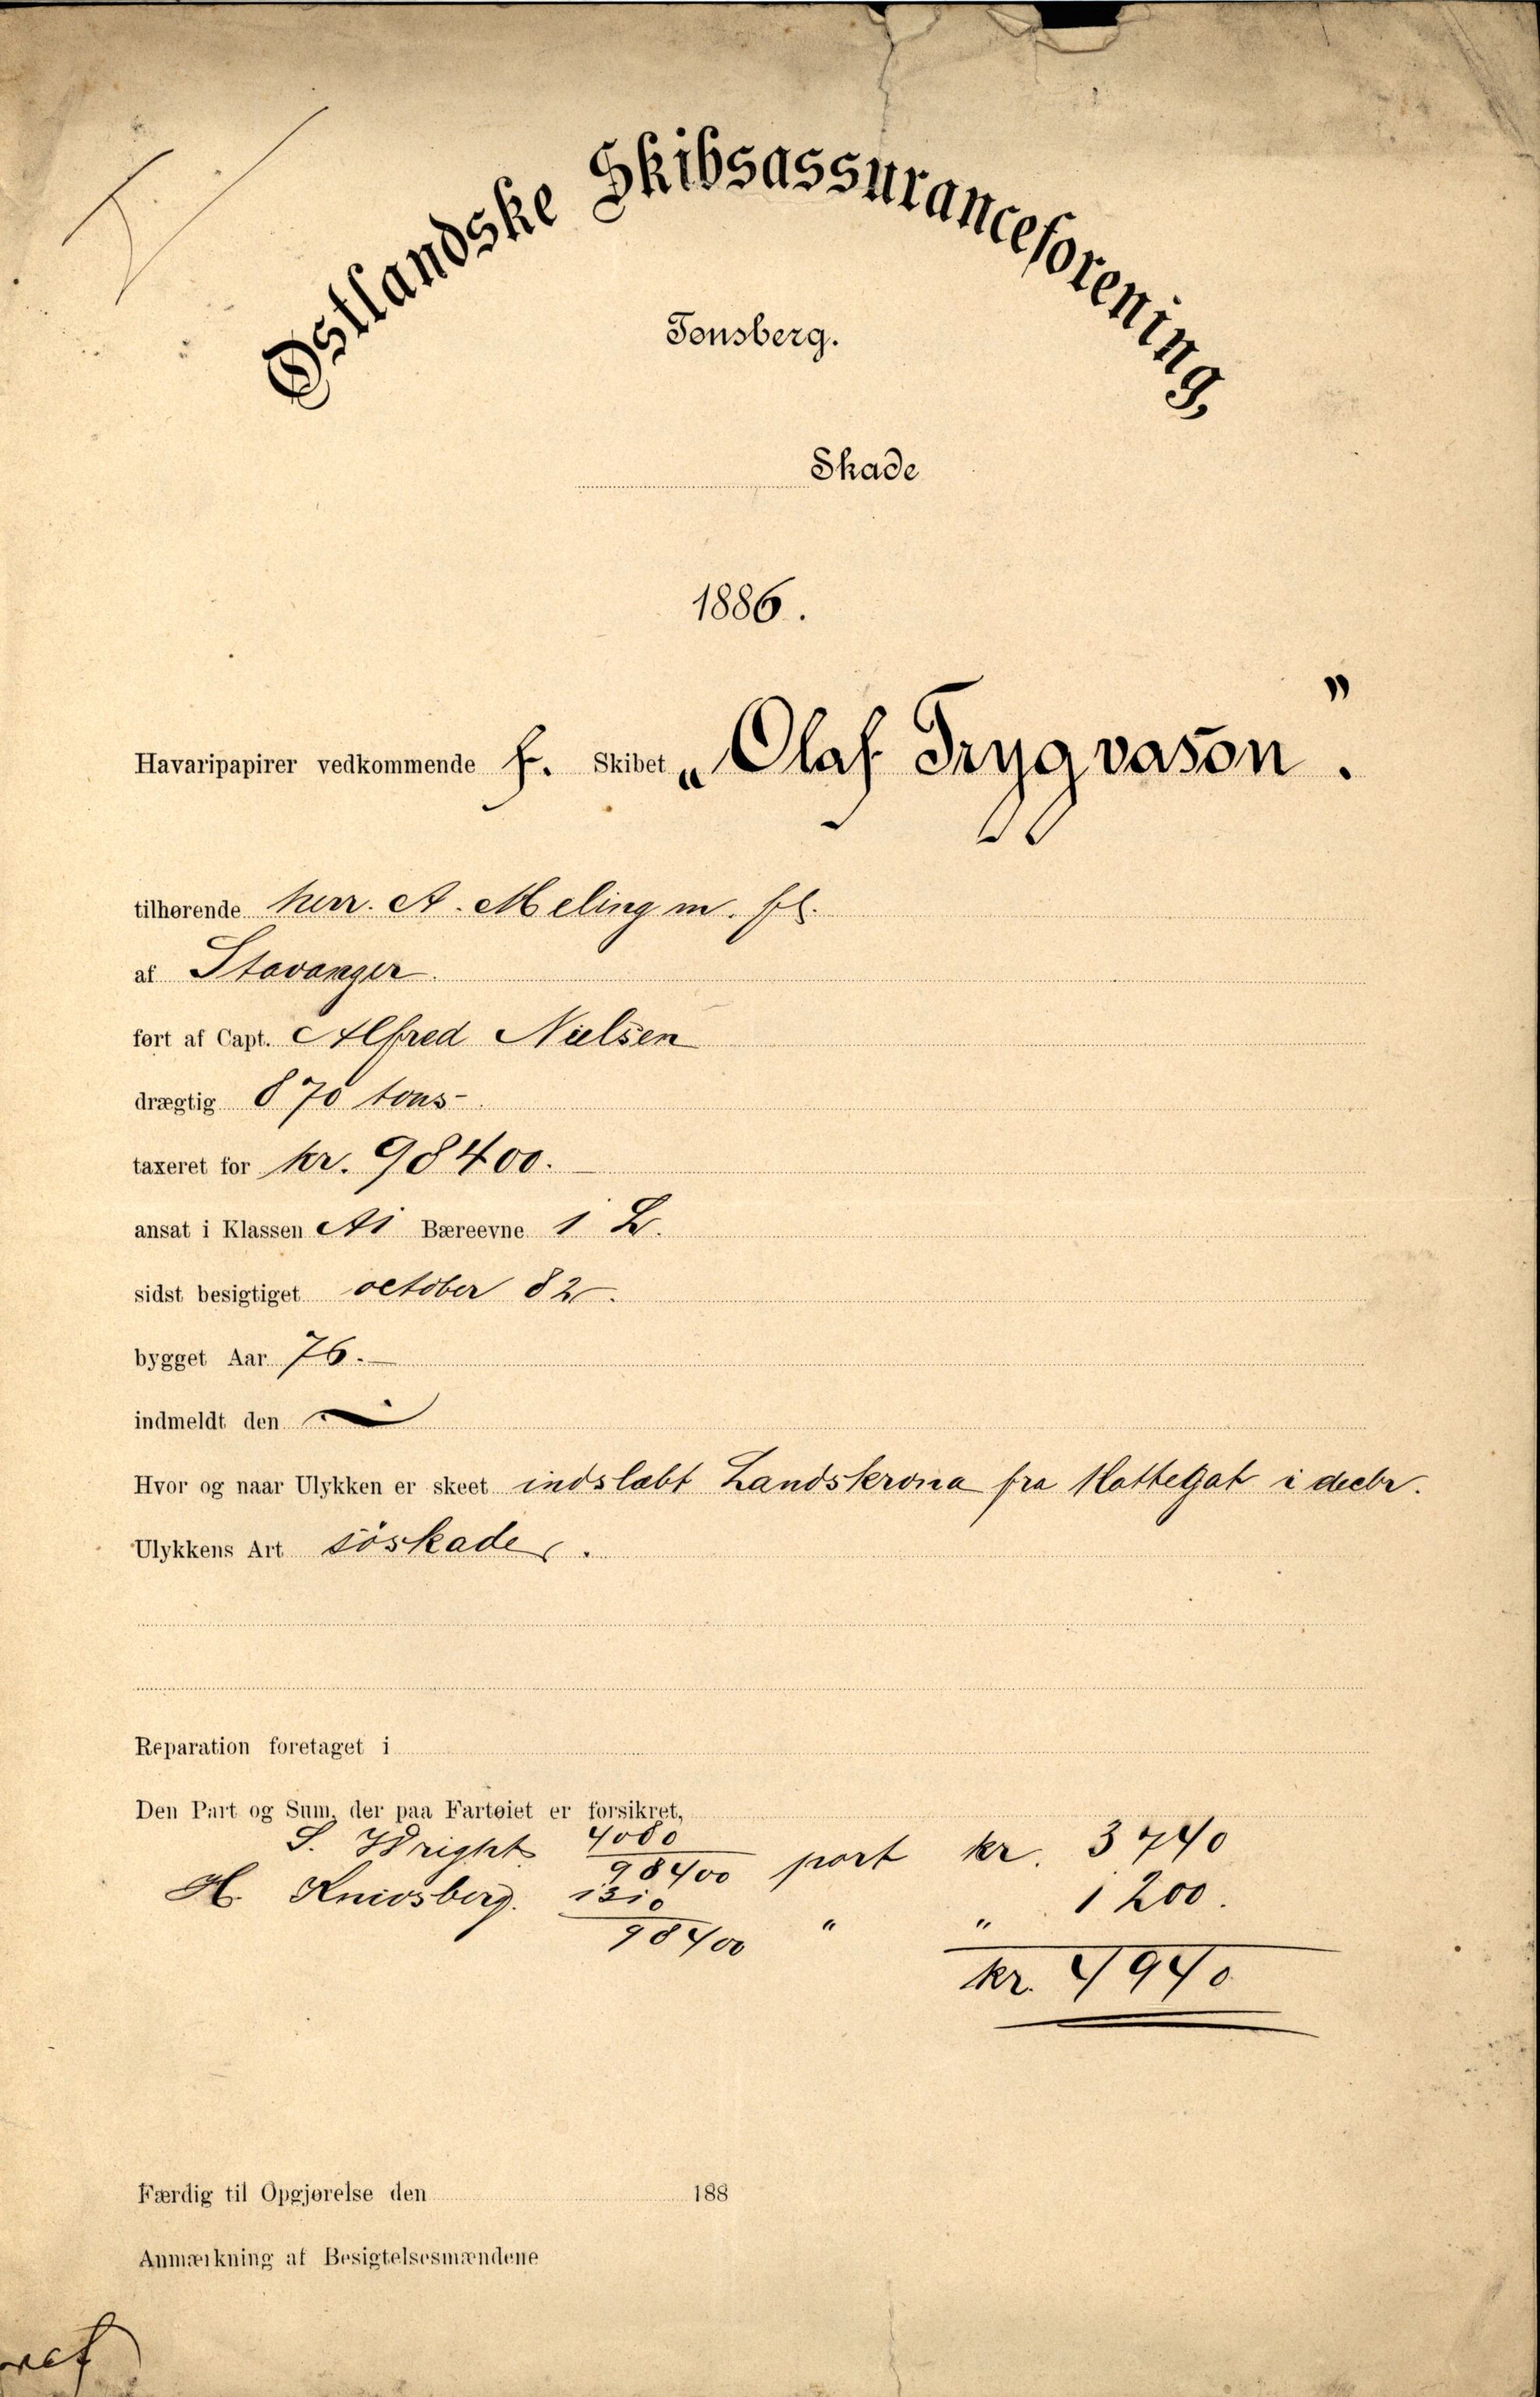 Østlandske Skibsassuranceforening,
Tønsberg.
Skade
1886.
Havaripapirer vedkommende f. Skibet „Olaf Trygvason”.
tilhørende herr. A. Meling m. fl.
af Stavanger.
ført af Capt. Alfred Nielsen
drægtig 870 tons
taxeret for kr. 98400.
ansat i Klassen A1 Bæreevne 1 L.
sidst besigtiget october 82.
bygget Aar 76.
indmeldt den
Hvor og naar Ulykken er skeet indslæbt Landskrona fra Kattegat i decbr.
Ulykkens Art söskade.
Reparation foretaget i
Den Part og Sum, der paa Fartøiet er forsikret,
S. Wright 4080/98400 part kr. 3740
H. Knivsberg. 1310/98400 " " 1200.
kr. 4940
Færdig til Opgjørelse den 188
Anmærkning af Besigtelsesmændene